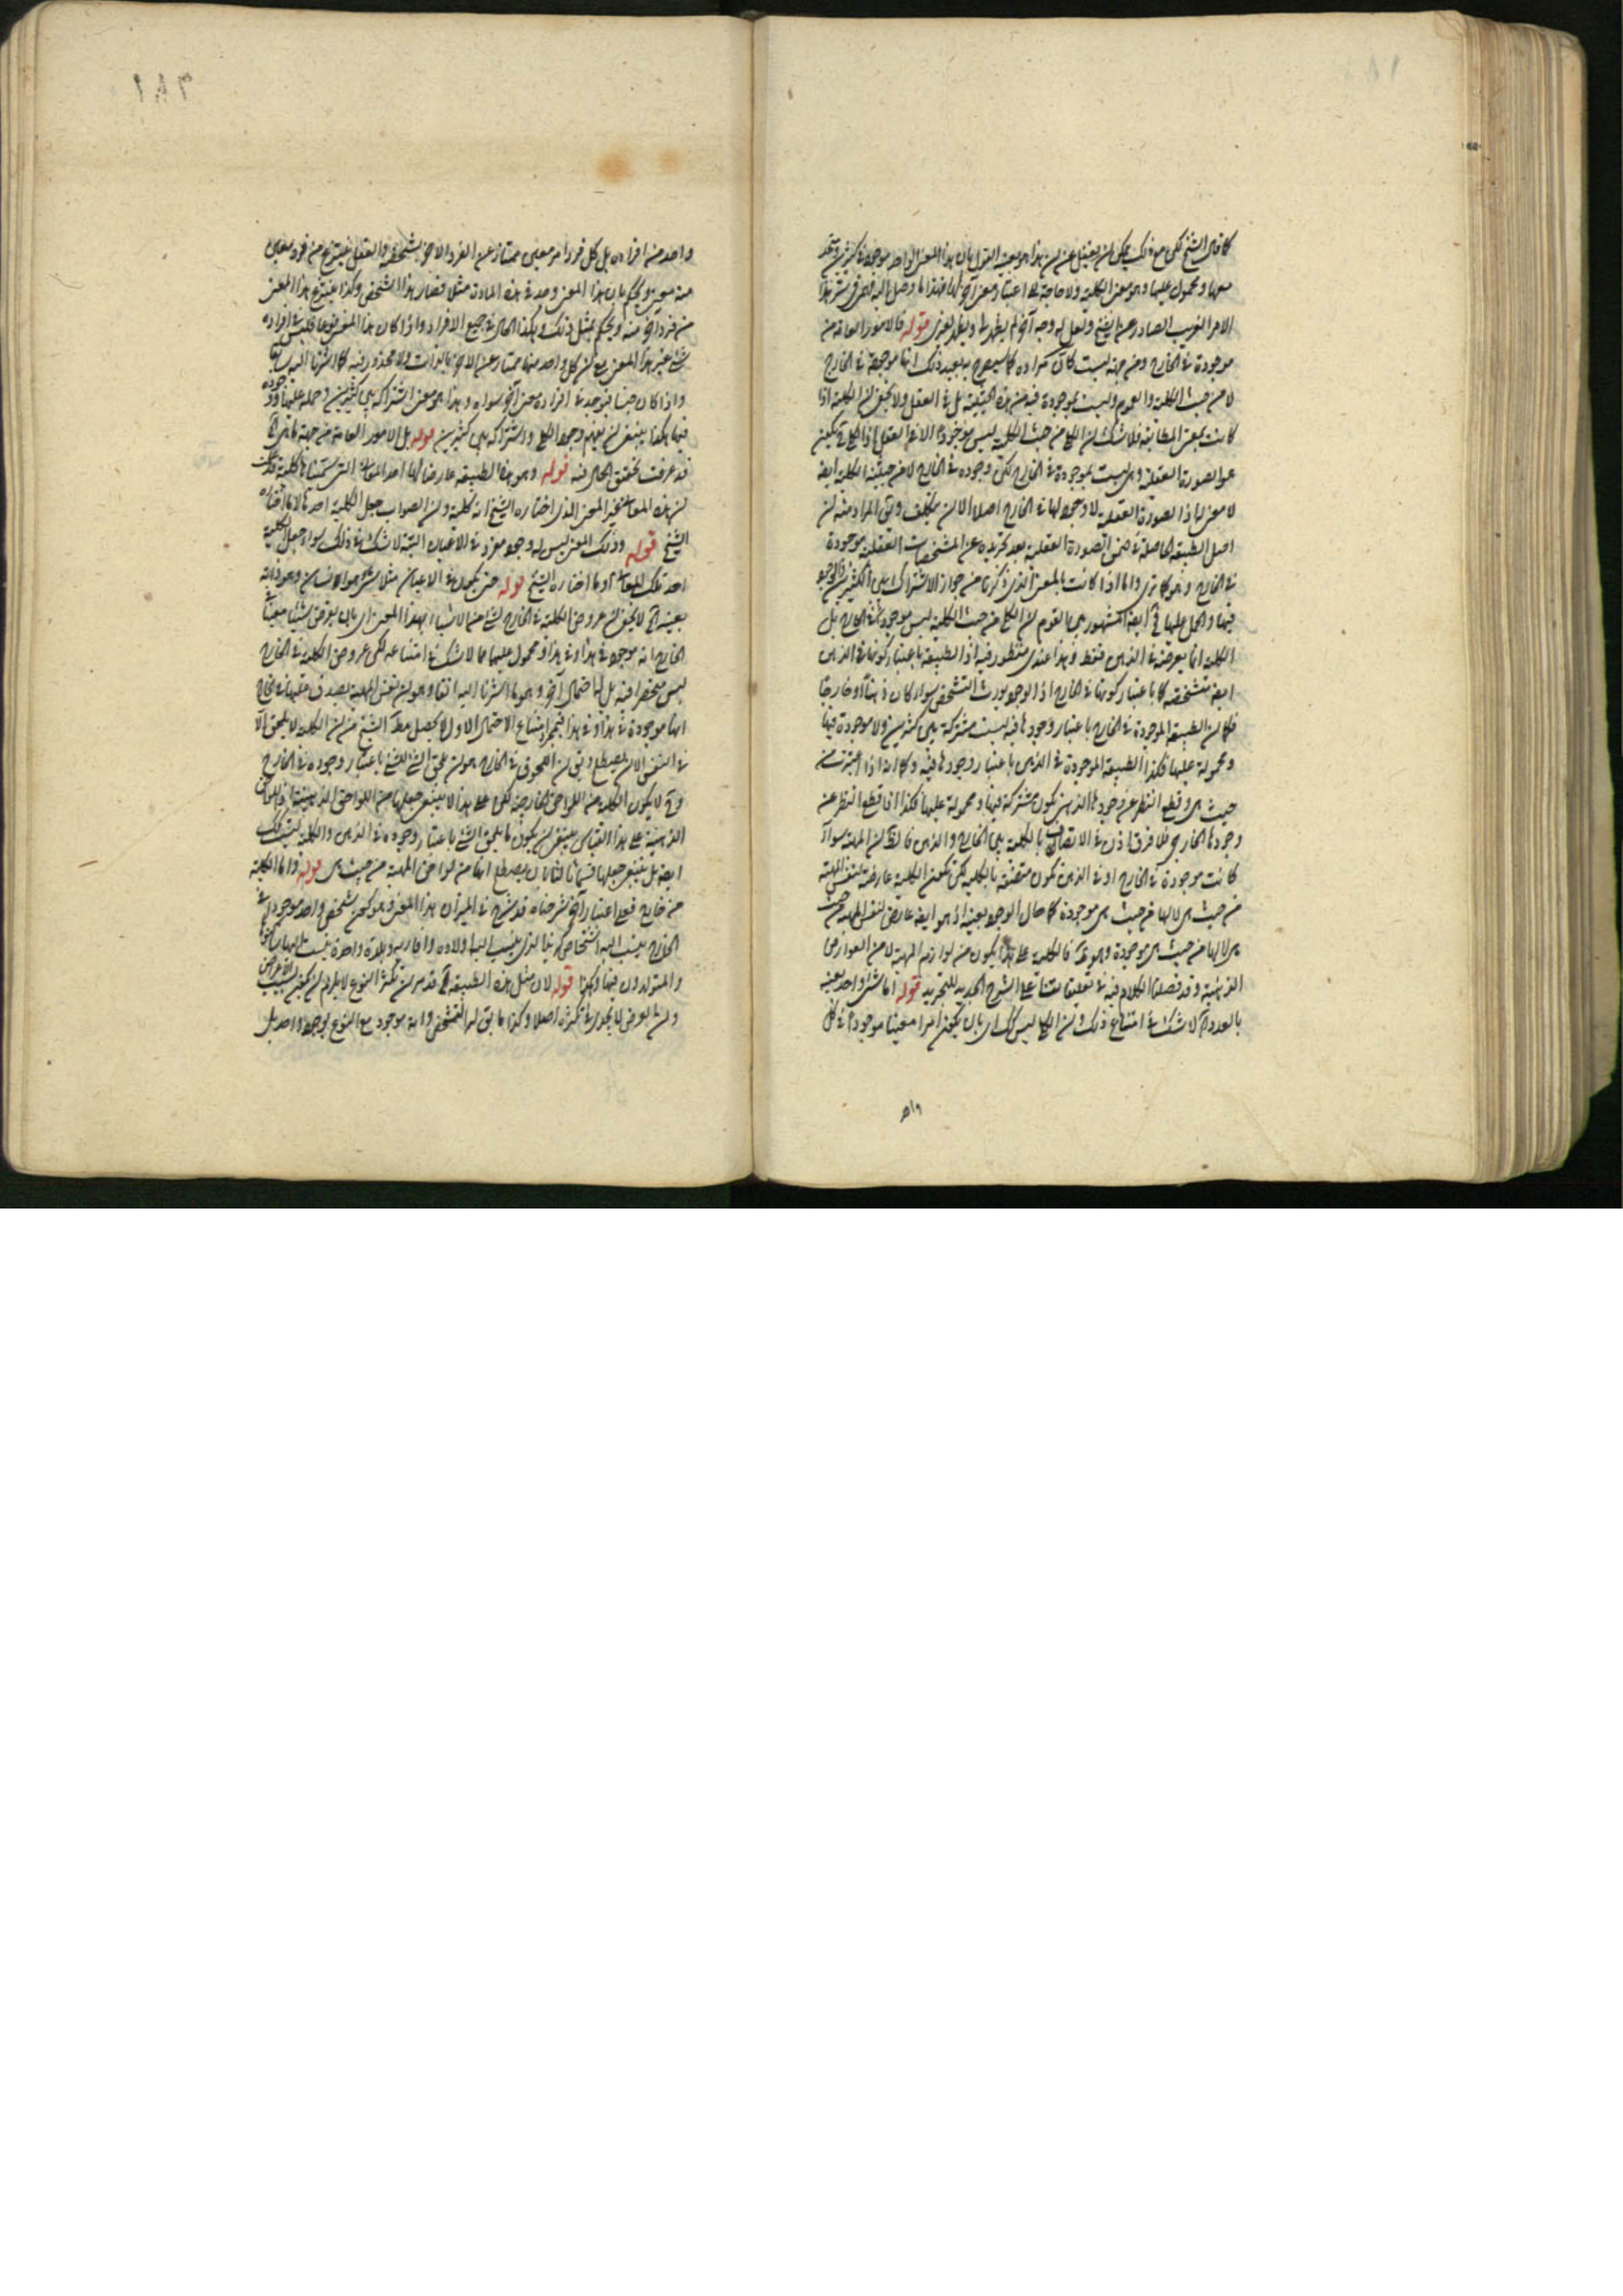 كما قال الشيخ لكن مع ذلك يمكن ان
معها ومحمول عليها وهو معنى الكلية ولا حاجة الى اعتبار معنى آخر
الامر الغريب الصادر عن الشيخ ولعل له وجه آخر لم يظهر لنا ويظهر لغيرنا قوله فالامور العامة من
موجودة في الخارج ومن جهة ليست كان مراده كما سيصرح به بعيد ذلك انها موجودة في الخارج
لا من حيث الكلية والعموم وليست بموجودة فيه من هذه الحيثية بل في العقل ولا يخفى ان الكلية اذا
كانت بمعنى المطابقة فلا شك ان الكلي من حيث الكلية ليس موجودا الا في العقل اذ الكلي
هو الصورة العقلية وهي ليست بموجودة في الخارج لكن وجوده في الخارج لا من حيثية الكلية ايضا
لا معنى له اذ الصورة العقلية لا وجود لها في الخارج اصلا الا ان يتكلف ويق المراد منه ان
اصل الطبيعة الحاصلة في ضمن الصورة العقلية بعد تجريده عن المشخصات العقلية موجودة
في الخارج وهو كما ترى واما اذا كانت بالمعنى الذي ذكرنا من جواز الاشتراك بين الكثيرين
فيها والحمل عليها فح ايضا المشهور بين القوم ان الكلي من حيث الكلية ليس موجودا في الخارج بل
الكلية انما يعرضه في الذهن فقط وهذا عندي منظور فيه اذ الطبيعة باعتبار كونها في الذهن
ايضا متشخصة كما باعتبار كونها في الخارج اذ الوجود يورث التشخص سواء كان ذهنيا او خارجيا
فكما ان الطبيعة الموجودة في الخارج باعتبار وجودها فيه ليست مشتركة بين كثيرين ولا موجودة فيها
ومحمولة عليها فكذا الطبيعة الموجودة في الذهن باعتبار وجودها فيه وكما انه اذا اعتبرت من
حيث هي وقطع النظر عن وجودها الذهني تكون مشتركة فيها ومحمولة عليها فكذا اذا قطع النظر عن
وجودها الخارجي فلا فرق اذن في الاتصاف بالكلية بين الخارج والذهن فالحق ان المهية سواء
كانت موجودة في الخارج او في الذهن تكون متصفة بالكلية لكن تكون الكلية عارضة لنفس المهية
من حيث هي لا لها من حيث هي موجودة كما حال الوجود بعينه اذ هو ايضا عارض لنفس المهية من حيث
هي لا لها من حيث هي موجودة فالكلية على هذا يكون من لوازم المهية لا من العوارض
الذهنية وقد فصلنا الكلام فيه في تعليقاتنا على الشرح الجديد للتجريد قوله اما شئ واحد بعينه
بالعدد لا شك في امتناع ذلك وان الكلي ليس كك اي بان يكون امرا معينا موجودا في كل
واحد
واحد من افراده بل كل فرد امر معين ممتاز عن الفرد الآخر بشخصه والعقل ينتزع من فرد معين
منه معنى ويحكم بان هذا المعنى وجد في هذه المادة مثلا فصار هذا الشخص وكذا ينتزع هذا المعنى
من فرد آخر منه ويحكم بمثل ذلك وهكذا الحال في جميع الافراد واذا كان هذا المعنى نوعا فليس في افراده
شئ غير هذا المعنى مع ان كل واحد منها ممتاز عن الآخر بالذات ولا محذور فيه كما اشرنا اليه سابقا
واذا كان جنسا فيوجد في افراده معنى آخر سواه وهذا هو معنى اشتراكه بين كثيرين وحمله عليها ووجوده
فيها هكذا ينبغي ان يفهم وجود الكلي واشتراكه بين كثيرين قوله بل الامور العامة من جهة
قد عرفت تحقيق الحال فيه قوله وهو هذا الطبيعة عارضا لها احد المعاني التي سميناها كلية قد عرفت
ان هذه المعاني غير المعنى الذي اختاره الشيخ انه كلية وان الصواب جعل الكلية احدها لا ما اختاره
الشيخ قوله وذلك المعنى ليس له وجود مفرد في الاعيان البتة لا شك في ذلك سواء جعل الكلية
احد تلك المعاني او ما اختاره الشيخ قوله حتى يكون في الاعيان مثلا شئ هو انسان وهو ذاته
بعينه لا يخفى ان عروض الكلية في الخارج لشئ من الاشياء بهذا المعنى اي بان يعرض شيئا معينا
الخارج انه موجود في هذا وفي هذا ومحمول عليهما مما لا شك في امتناعه لكن عروض الكلية في الخارج
ليس منحصرا فيه بل لها احتمال آخر وهو ما اشرنا اليه آنفا وهو ان نفس المهية يصدق عليها في الخارج
انها موجودة في هذا وفي هذا فبمجرد امتناع الاحتمال الاول لا يحصل مط الشيخ من ان الكلية لا يلحق الا
في النفس الا ان يصطلح ويق ان اللحوق في الخارج هو ان يلحق الشئ للشئ باعتبار وجوده في الخارج
وح لا يكون الكلية من اللواحق الخارجية لكن على هذا لا ينبغي جعلها من اللواحق الذهنية اذ اللواحق
الذهنية على هذا القياس ينبغي ان يكون ما يلحق الشئ باعتبار وجوده في الذهن والكلية ليست كك
ايضا بل ينبغي جعلها قسما ثالثا بان يصطلح انها من لواحق المهية من حيث هي قوله واما الكلية
من خارج فعلى اعتبار آخر شرحناه قد شرح في الميزان هذا المعنى وهو كون شخص واحد موجود في
الخارج ينسب اليه اشخاص كزيد الذي ينسب اليه اولاده واقاربه وبلدة واحدة ينسب اليها ساكنوها
والمتولدون فيها وهكذا قوله لان مثل هذه الطبيعة قد مر ان تكثر النوع لا يلزم ان يكون بسبب الاعراض
وان العرض لا يجدي في تكثره اصلا وكذا ما يق له التشخص وانه موجود مع النوع بوجود واحد بل